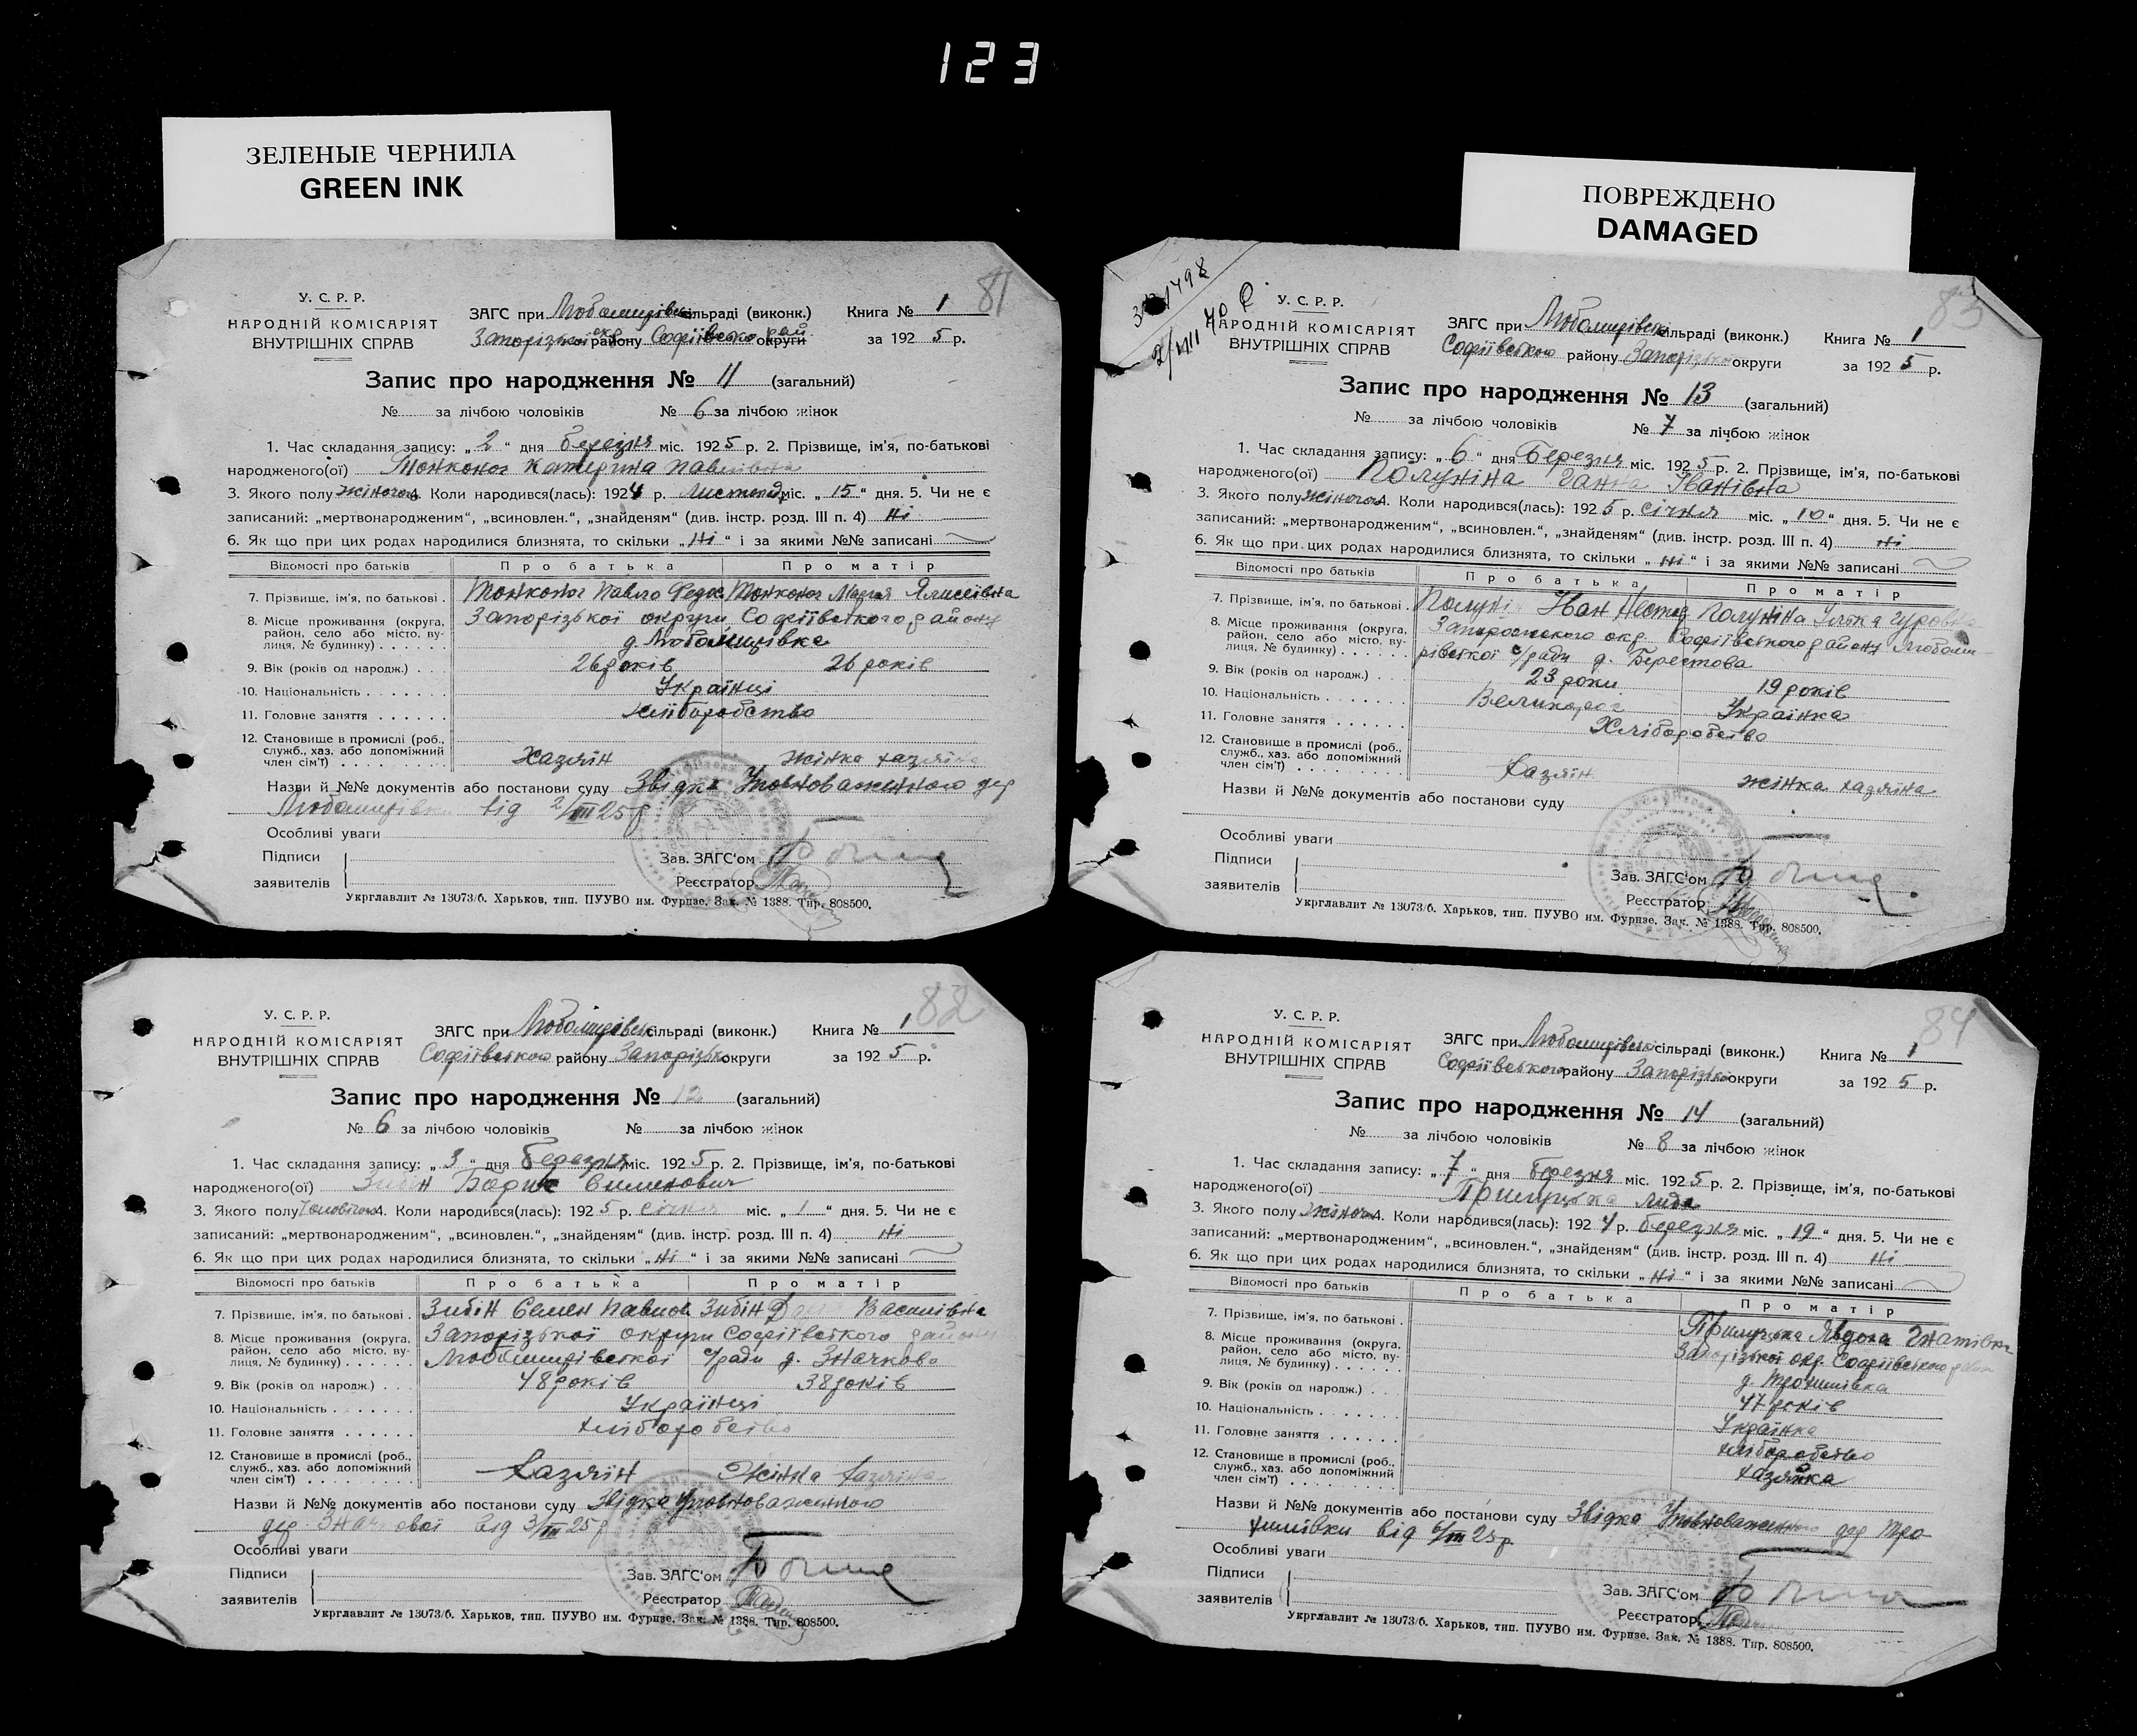 123
ЗЕЛЕНЫЕ ЧЕРНИЛА
GREEN INK
81
У. С. Р. Р.
НАРОДНІЙ КОМІСАРІЯТ
ВНУТРІШНІХ СПРАВ
ЗАГС при Любомирівсь сільраді (виконк.) Книга № 1
Запорізької окр. району Софіївсько рай. округи за 1925 р.
Запис про народження № 11 (загальний)
№ за лічбою чоловіків № 6 за лічбою жінок
1. Час складання запису: „2“ дня березня міс. 1925 р. 2. Прізвище, ім’я, по-батькові
народженого(ої) Тонконог Катерина Павлівна
3. Якого полу жіночого 4. Коли народився(лась): 1924 р. листопад міс. „15“ дня. 5. Чи не є
записаний: „мертвонародженим“, „всиновлен.“, „знайденям“ (див. інстр. розд. III п. 4) ні
6. Як що при цих родах народилися близнята, то скільки „ні“ і за якими №№ записані
Відомості про батьків Про батька Про матір
7. Прізвище, ім’я, по батькові . Тонконог Павло Федос Тонконог Мария
8. Місце проживання (округа, район, село або місто, вулиця, № будинку) . . . . . . Запорізької округи, Софіївського району
д. Любомирівка
9. Вік (років од народж.) . . . 26 років 26 років
10. Національність . . . . . . . Українці
11. Головне заняття . . . . . . хліборобство
12. Становище в промислі (роб., служб., хаз. або допоміжний член сім’ї) . . . . . . . . . Хазяїн жінка хазяїна
Назви й №№ документів або постанови суду Звідка Уповноваженного дер
Любомирівк від 2/III 25 р
Особливі уваги
Підписи
заявителів
Зав. ЗАГС’ом
Реєстратор
Укрглавлит № 13073/б. Харьков, тип. ПУУВО им. Фрунзе. Зак. № 1388. Тир. 808500.
82
У. С. Р. Р.
НАРОДНІЙ КОМІСАРІЯТ
ВНУТРІШНІХ СПРАВ
ЗАГС при Любомирівсь сільраді (виконк.) Книга № 1
Софіївського району Запорізько округи за 1925 р.
Запис про народження № 12 (загальний)
№ 6 за лічбою чоловіків № за лічбою жінок
1. Час складання запису: „3“ дня березня міс. 1925 р. 2. Прізвище, ім’я, по-батькові
народженого(ої) Зибін Борис Семенович
3. Якого полу чоловічого 4. Коли народився(лась): 1925 р. січня міс. „1“ дня. 5. Чи не є
записаний: „мертвонародженим“, „всиновлен.“, „знайденям“ (див. інстр. розд. III п. 4) ні
6. Як що при цих родах народилися близнята, то скільки „ні“ і за якими №№ записані
Відомості про батьків Про батька Про матір
7. Прізвище, ім’я, по батькові . Зибін Семен Павлов Зибін Василівна
8. Місце проживання (округа, район, село або місто, вулиця, № будинку) . . . . . . Запорізької округи Софіївського району
Любомирівської с/ради д. Значкова
9. Вік (років од народж.) . . . 48 років 38 років
10. Національність . . . . . . . Українці
11. Головне заняття . . . . . . хліборобство
12. Становище в промислі (роб., служб., хаз. або допоміжний член сім’ї) . . . . . . . . . Хазяїн Жінка хазяїна
Назви й №№ документів або постанови суду Звідка Уповноваженного
дер. Значкової від 3/III 25 р
Особливі уваги
Підписи
заявителів
Зав. ЗАГС’ом
Реєстратор
Укрглавлит № 13073/б. Харьков, тип. ПУУВО им. Фрунзе. Зак. № 1388. Тир. 808500.
ПОВРЕЖДЕНО
DAMAGED
83
У. С. Р. Р.
НАРОДНІЙ КОМІСАРІЯТ
ВНУТРІШНІХ СПРАВ
ЗАГС при Любомирівські сільраді (виконк.) Книга № 1
Софіївського району Запорізько округи за 1925 р.
Запис про народження № 13 (загальний)
№ за лічбою чоловіків № 7 за лічбою жінок
1. Час складання запису: „6“ дня Березня міс. 1925 р. 2. Прізвище, ім’я, по-батькові
народженого(ої) Полуніна Ганна Іванівна
3. Якого полу жіночого 4. Коли народився(лась): 1925 р. січня міс. „10“ дня. 5. Чи не є
записаний: „мертвонародженим“, „всиновлен.“, „знайденям“ (див. інстр. розд. III п. 4) ні
6. Як що при цих родах народилися близнята, то скільки „ні“ і за якими №№ записані
Відомості про батьків Про батька Про матір
7. Прізвище, ім’я, по батькові . Полунін Іван Нестер Полуніна Уляна
8. Місце проживання (округа, район, село або місто, вулиця, № будинку) . . . . . . окр. Софіївського району Любоми-
рівської с/ради д. Берестова
9. Вік (років од народж.) . . . 23 роки 19 років
10. Національність . . . . . . . Великорос Українка
11. Головне заняття . . . . . . Хліборобство
12. Становище в промислі (роб., служб., хаз. або допоміжний член сім’ї) . . . . . . . . . Хазяїн жінка хазяїна
Назви й №№ документів або постанови суду
Особливі уваги
Підписи
заявителів
Зав. ЗАГС’ом
Реєстратор
Укрглавлит № 13073/б. Харьков, тип. ПУУВО им. Фрунзе. Зак. № 1388. Тир. 808500.
84
У. С. Р. Р.
НАРОДНІЙ КОМІСАРІЯТ
ВНУТРІШНІХ СПРАВ
ЗАГС при Любомирівські сільраді (виконк.) Книга № 1
Софіївського району Запорізько округи за 1925 р.
Запис про народження № 14 (загальний)
№ за лічбою чоловіків № 8 за лічбою жінок
1. Час складання запису: „7“ дня березня міс. 1925 р. 2. Прізвище, ім’я, по-батькові
народженого(ої) Прилуцька Лида
3. Якого полу жіночого 4. Коли народився(лась): 1924 р. березня міс. „19“ дня. 5. Чи не є
записаний: „мертвонародженим“, „всиновлен.“, „знайденям“ (див. інстр. розд. III п. 4) ні
6. Як що при цих родах народилися близнята, то скільки „ні“ і за якими №№ записані
Відомості про батьків Про батька Про матір
7. Прізвище, ім’я, по батькові . Прилуцька Явдоха Гнатівна
8. Місце проживання (округа, район, село або місто, вулиця, № будинку) . . . . . . Запорізької окр. Софіївського район
д. Трохимівка
9. Вік (років од народж.) . . . 47 років
10. Національність . . . . . . . Українка
11. Головне заняття . . . . . . хліборобство
12. Становище в промислі (роб., служб., хаз. або допоміжний член сім’ї) . . . . . . . . . хазяйка
Назви й №№ документів або постанови суду Звідка Уповноваженного дер Тро-
химівки від 6/III 25 р.
Особливі уваги
Підписи
заявителів
Зав. ЗАГС’ом
Реєстратор
Укрглавлит № 13073/б. Харьков, тип. ПУУВО им. Фрунзе. Зак. № 1388. Тир. 808500.